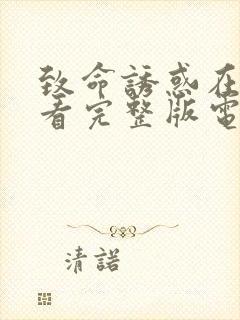 致命誘惑在
看完整版電
清諾